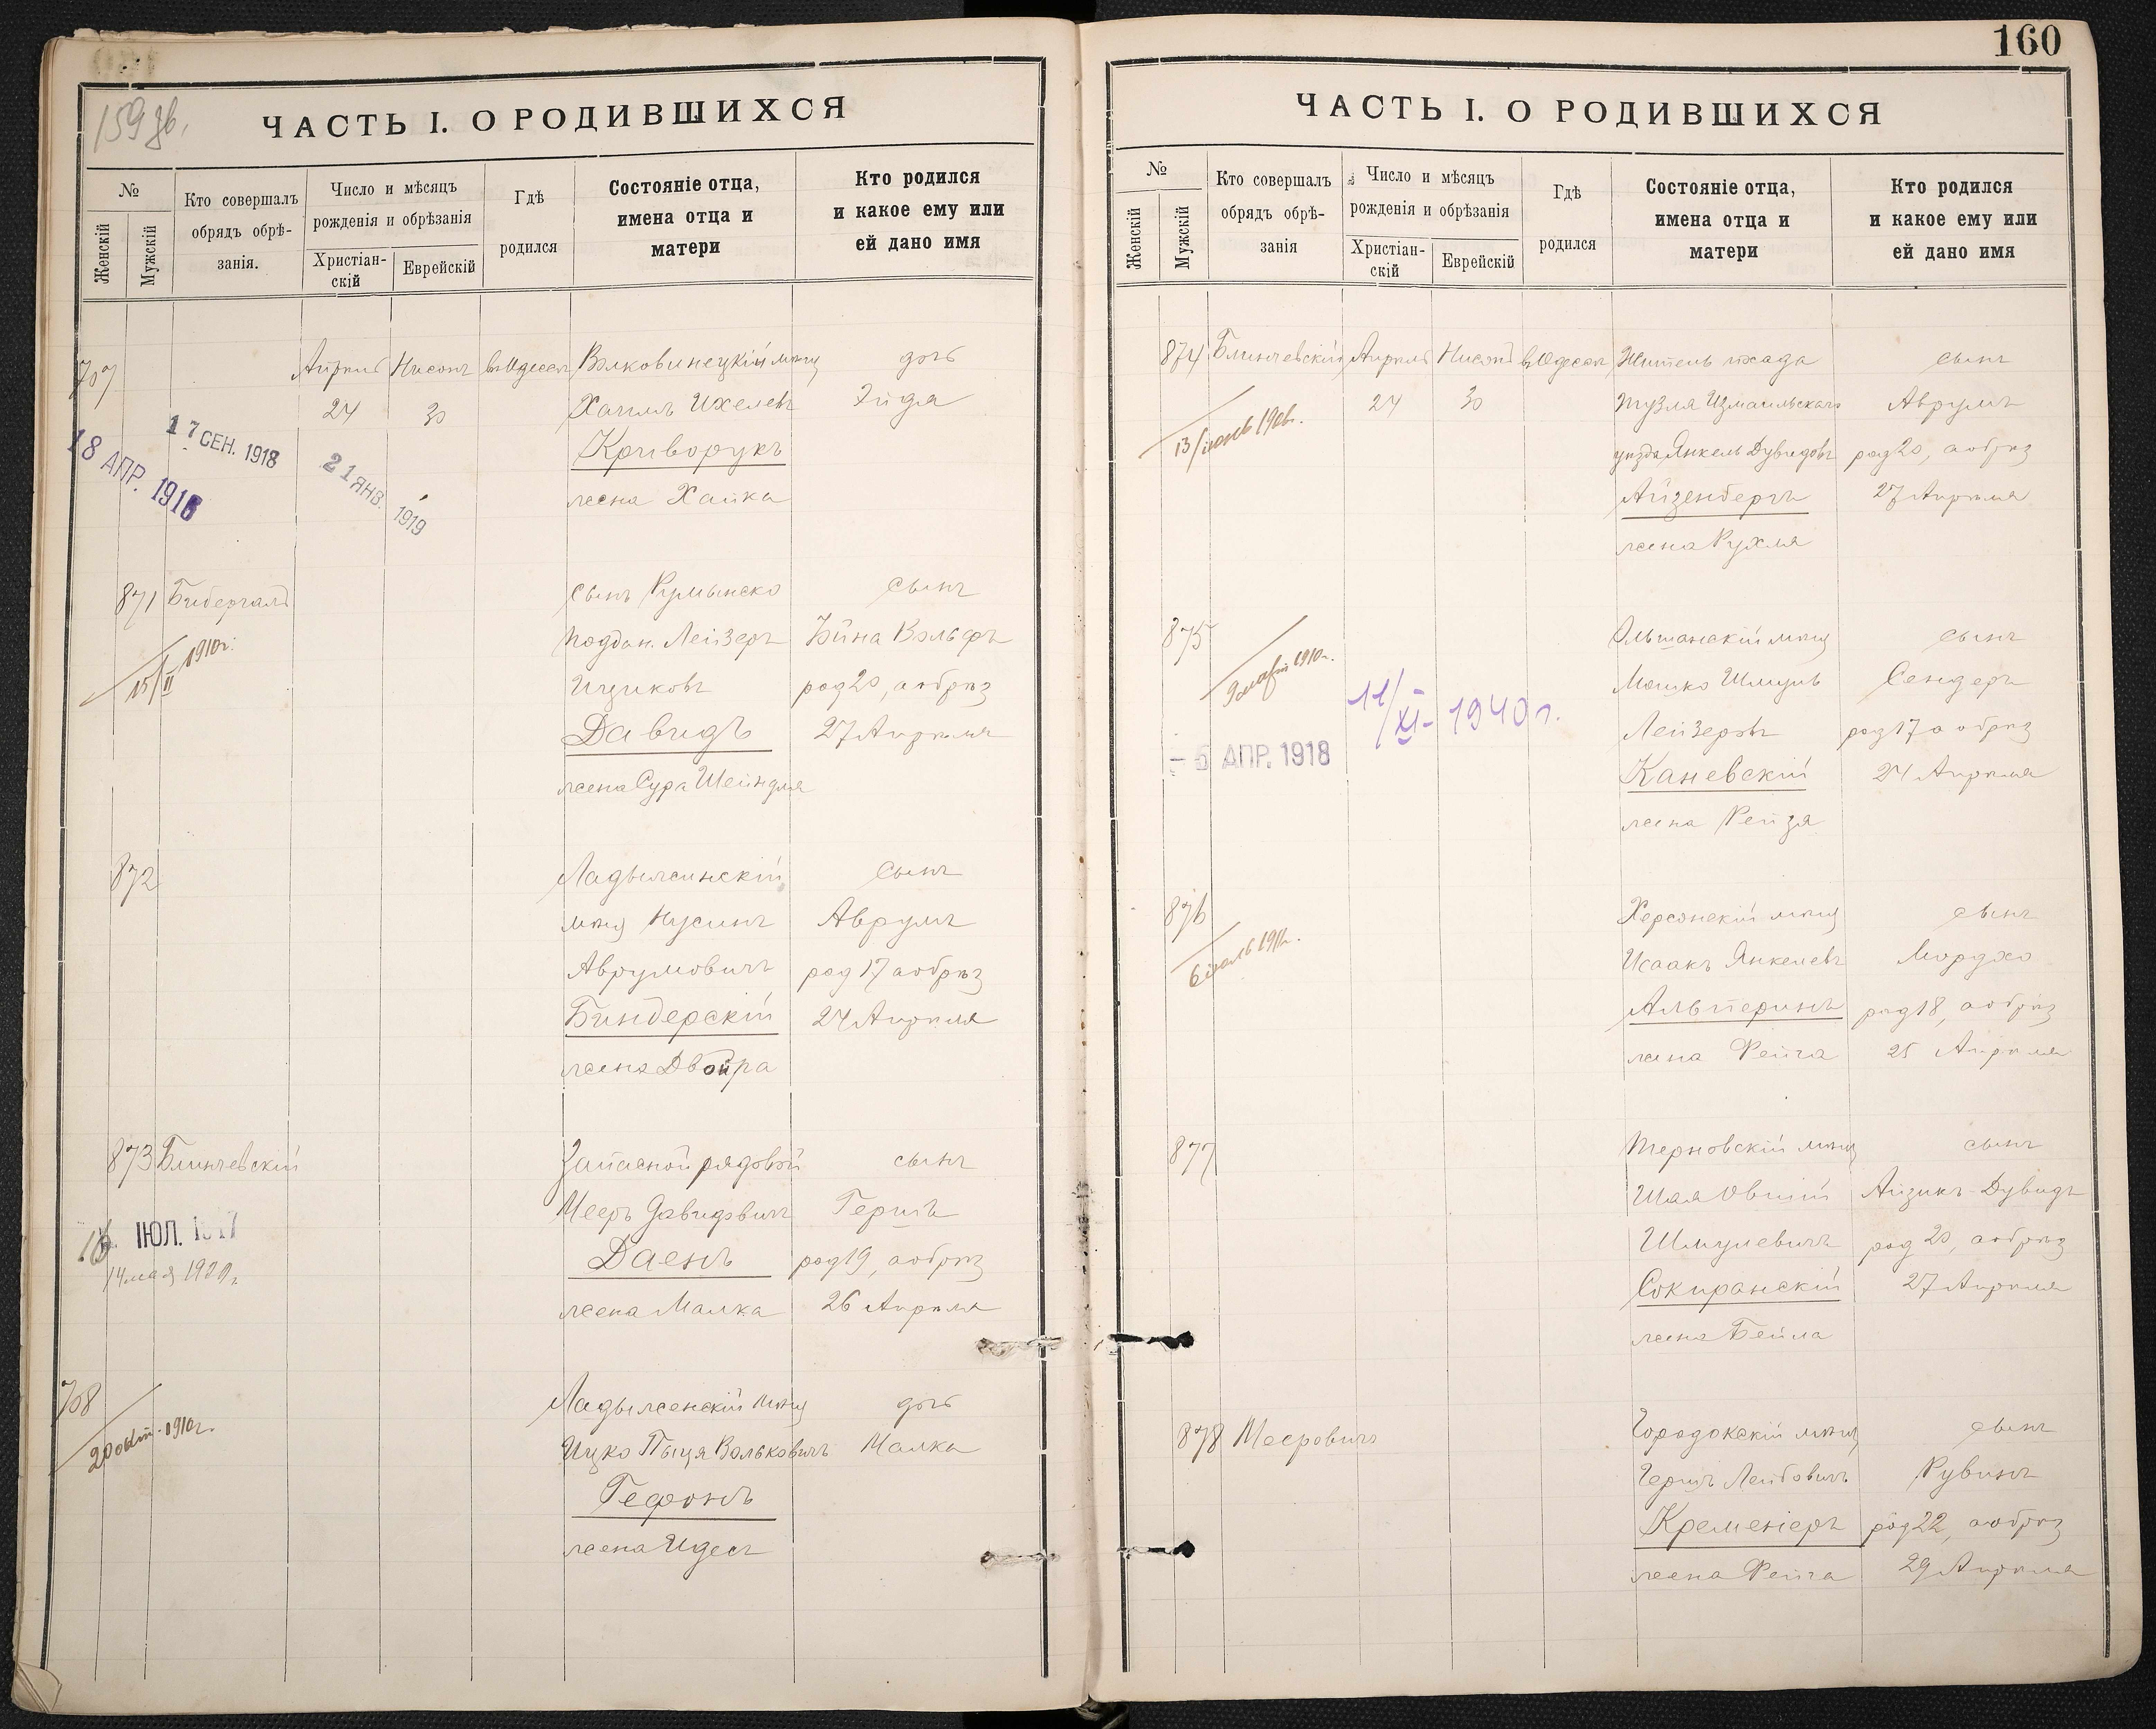 159 зв.
ЧАСТЬ I. О РОДИВШИХСЯ
№
Женскій
Мужскій
Кто совершалъ
обрядъ обрѣ-
занія.
Число и мѣсяцъ
рожденія и обрѣзанія
Христіан-
скій
Еврейскій
Гдѣ
родился
Состояніе отца,
имена отца и
матери
Кто родился
и какое ему или
ей дано имя
707 Апрѣль Нисонъ въ Одессѣ Волковинецкій мѣщ дочь
24 30 Хаимъ Ихелевъ
Криворукъ
жена Хайка
17 СЕН. 1918
18 АПР. 1918
21 ЯНВ. 1919
871 Бибергалъ сынъ Румынско сынъ
поддан. Лейзеръ Вольфъ
Ициковъ род 20, а обрѣз
Давидъ 27 Апрѣля
жена Сура Шейндля
15/II 1910 г.
872 Ладыжинскій сынъ
мѣщ Нусинъ Аврумъ
Аврумовичъ род 17 а обрѣз
Биндерскій 24 Апрѣля
жена Двойра
873 Блинчевскій Запасной рядовой сынъ
Мееръ Давидовичъ Гершъ
Даенъ род 19, а обрѣз
жена Малка 26 Апрѣля
ІЮЛ. 1917
14 мая 1920 г.
708 Ладыженскій мѣщ дочь
Ицко Пыця Вольковичъ Малка
Гефонъ
жена Идесъ
20 окт. 1910 г.
160
ЧАСТЬ I. О РОДИВШИХСЯ
№
Женскій
Мужскій
Кто совершалъ
обрядъ обрѣ-
занія
Число и мѣсяцъ
рожденія и обрѣзанія
Христіан-
скій
Еврейскій
Гдѣ
родился
Состояніе отца,
имена отца и
матери
Кто родился
и какое ему или
ей дано имя
874 Блинчевскій Апрѣль Нисонъ въ Одессѣ Житель посада сынъ
24 30 Тузля Измаильскаго Аврумъ
уѣзда Янкель Дувидовъ род 20, а обрѣз
Айзенбергъ 27 Апрѣля
жена Рухля
875 Ольшанскій мѣщ сынъ
Мошко Шмуль Сендеръ
Лейзеровъ род 17 а обрѣз
Каневскій 24 Апрѣля
жена Рейзя
9 марта 1910 г.
11/XI- 1940 г.
- 5 АПР. 1918
876 Херсонскій мѣщ сынъ
Исаакъ Янкелевъ Мордхо
Альперинъ род 18, а обрѣз
жена Фейга 25 Апрѣля
877 Терновскій мѣщ сынъ
Шая Овшій Айзикъ-Дувидъ
Шмулевичъ род 20, а обрѣз
Сокиранскій 27 Апрѣля
жена Бейла
878 Мееровичъ Городокскій мѣщ сынъ
Гершъ Лейбовичъ Рувинъ
Кременіеръ род 22, а обрѣз
жена Фейга 29 Апрѣля